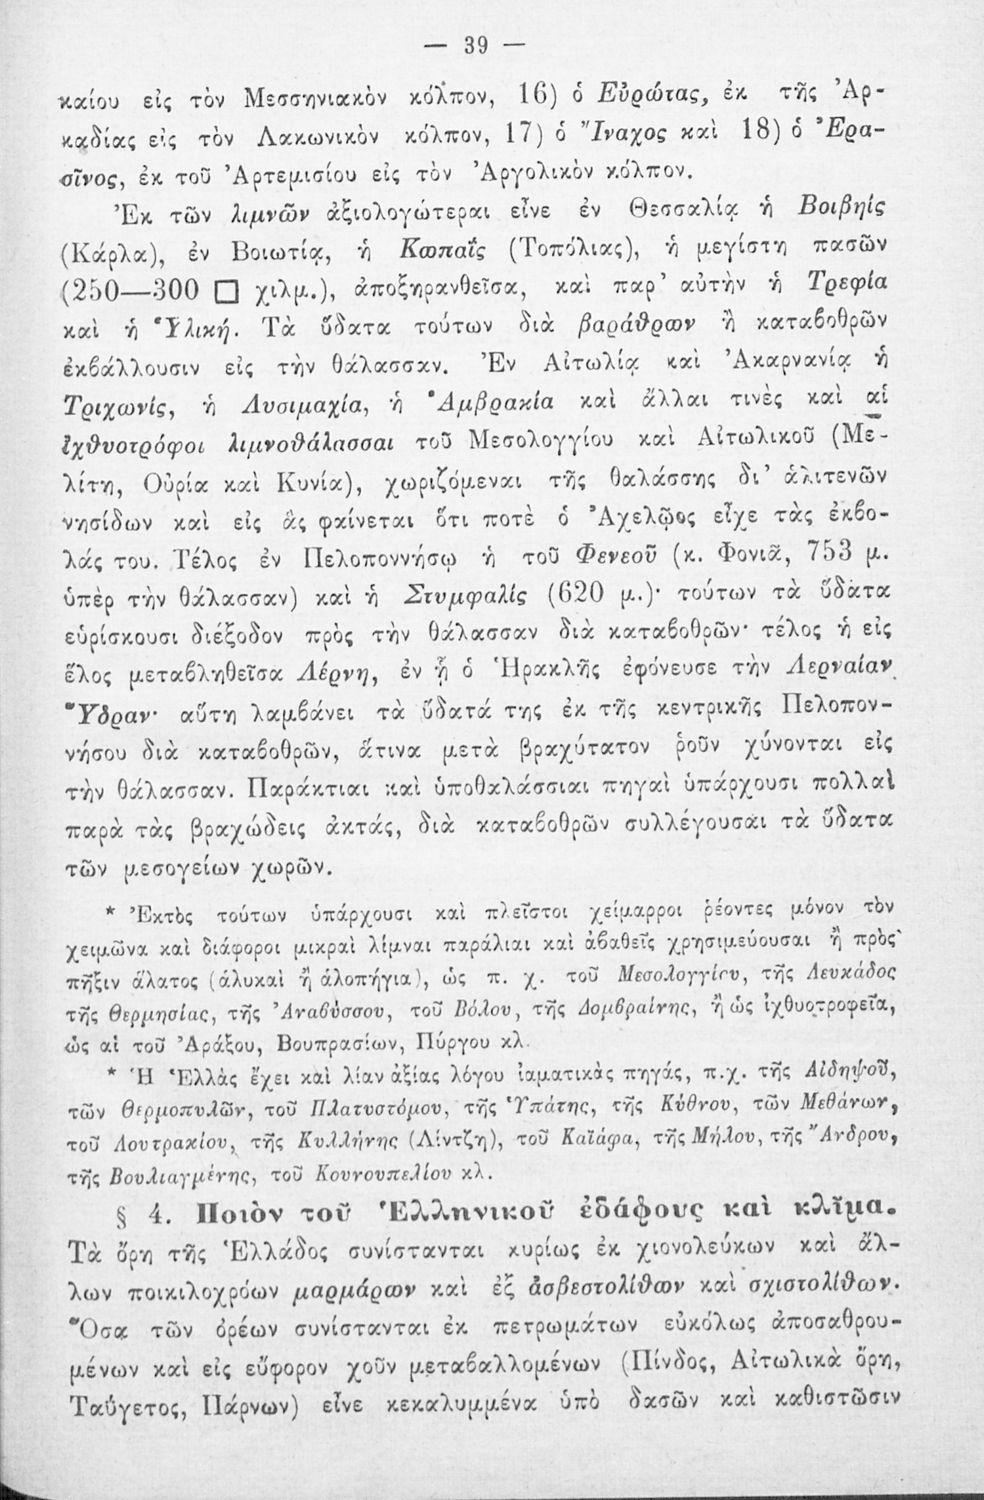 — 39 —
καίου εἰς τὸν Μεσσηνιακὸν κόλπον, 16) ὁ Εὐρώτας, ἐκ τῆς Ἀρ-
καδίας εἰς τὸν Λακωνικὸν κόλπον, 17) ὁ Ἴναχος καὶ 18) ὁ Ἐρα-
σῖνος, ἐκ τοῦ Ἀρτεμισίου εἰς τὸν Ἀργολικὸν κόλπον.
Ἐκ τῶν λιμνῶν ἀξιολογώτεραι εἶνε ἐν Θεσσαλίᾳ ἡ Βοιβηίς
(Κάρλα), ἐν Βοιωτίᾳ, ἡ Κωπαΐς (Τοπόλιας), ἡ μεγίστη πασῶν
(250—300 □ χιλμ.), ἀποξηρανθεῖσα, καὶ παρ' αὐτὴν ἡ Τρεφία
καὶ ἡ Ὑλική. Τὰ ὕδατα τούτων διὰ βαράθρων ἢ καταβοθρῶν
ἐκβάλλουσιν εἰς τὴν θάλασσαν. Ἐν Αἰτωλίᾳ καὶ Ἀκαρνανίᾳ ἡ
Τριχωνίς, ἡ Λυσιμαχία, ἡ Ἀμβρακία καὶ ἄλλαι τινὲς καὶ αἱ
ἰχθυοτρόφοι λιμνοθάλασσαι τοῦ Μεσολογγίου καὶ Αἰτωλικοῦ (Με-
λίτη, Οὐρία καὶ Κυνία), χωριζόμεναι τῆς θαλάσσης δι' ἁλιτενῶν
νησίδων καὶ εἰς ἃς φαίνεται ὅτι ποτὲ ὁ Ἀχελῷος εἶχε τὰς ἐκβο-
λάς του. Τέλος ἐν Πελοποννήσῳ ἡ τοῦ Φενεοῦ (κ. Φονιᾶ, 753 μ.
ὑπὲρ τὴν θάλασσαν) καὶ ἡ Στυμφαλίς (620 μ.)· τούτων τὰ ὕδατα
εὑρίσκουσι διέξοδον πρὸς τὴν θάλασσαν διὰ καταβοθρῶν· τέλος ἡ εἰς
ἕλος μεταβληθεῖσα Λέρνη, ἐν ᾗ ὁ Ἡρακλῆς ἐφόνευσε τὴν Λερναίαν
Ὕδραν· αὕτη λαμβάνει τὰ ὕδατά της ἐκ τῆς κεντρικῆς Πελοπον-
νήσου διὰ καταβοθρῶν, ἅτινα μετὰ βραχύτατον ῥοῦν χύνονται εἰς
τὴν θάλασσαν. Παράκτιαι καὶ ὑποθαλάσσιαι πηγαὶ ὑπάρχουσι πολλαὶ
παρὰ τὰς βραχώδεις ἀκτάς, διὰ καταβοθρῶν συλλέγουσαι τὰ ὕδατα
τῶν μεσογείων χωρῶν.
* Ἐκτὸς τούτων ὑπάρχουσι καὶ πλεῖστοι χείμαρροι ῥέοντες μόνον τὸν
χειμῶνα καὶ διάφοροι μικραὶ λίμναι παράλιαι καὶ ἀβαθεῖς χρησιμεύουσαι ἢ πρὸς
πῆξιν ἅλατος (ἁλυκαὶ ἢ ἁλοπήγια), ὡς π. χ. τοῦ Μεσολογγίου, τῆς Λευκάδος
τῆς Θερμησίας, τῆς Ἀναβύσσου, τοῦ Βόλου, τῆς Δομβραίνης, ἢ ὡς ἰχθυοτροφεῖα,
ὡς αἱ τοῦ Ἀράξου, Βουπρασίων, Πύργου κλ.
* Ἡ Ἑλλὰς ἔχει καὶ λίαν ἀξίας λόγου ἰαματικὰς πηγάς, π.χ. τῆς Αἰδηψοῦ,
τῶν Θερμοπυλῶν, τοῦ Πλατυστόμου, τῆς Ὑπάτης, τῆς Κύθνου, τῶν Μεθάνων,
τοῦ Λουτρακίου, τῆς Κυλλήνης (Λίντζη), τοῦ Καϊάφα, τῆς Μήλου, τῆς Ἄνδρου,
τῆς Βουλιαγμένης, τοῦ Κουνουπελίου κλ.
§ 4. Ποιὸν τοῦ Ἑλληνικοῦ ἐδάφους καὶ κλῖμα.
Τὰ ὄρη τῆς Ἑλλάδος συνίστανται κυρίως ἐκ χιονολεύκων καὶ ἄλ-
λων ποικιλοχρόων μαρμάρων καὶ ἐξ ἀσβεστολίθων καὶ σχιστολίθων.
Ὅσα τῶν ὀρέων συνίστανται ἐκ πετρωμάτων εὐκόλως ἀποσαθρου-
μένων καὶ εἰς εὔφορον χοῦν μεταβαλλομένων (Πίνδος, Αἰτωλικὰ ὄρη,
Ταΰγετος, Πάρνων) εἶνε κεκαλυμμένα ὑπὸ δασῶν καὶ καθιστῶσιν